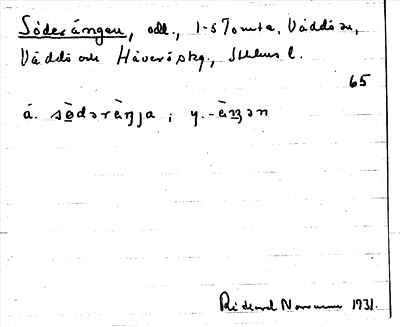 Söderängen, odl., 1-5 Tomta, Väddö sn,
Väddö och Häverö skg., Sthlms l.
65
á. sǿdəràŋja ; y. -àŋən
Rickard Norrman 1931.